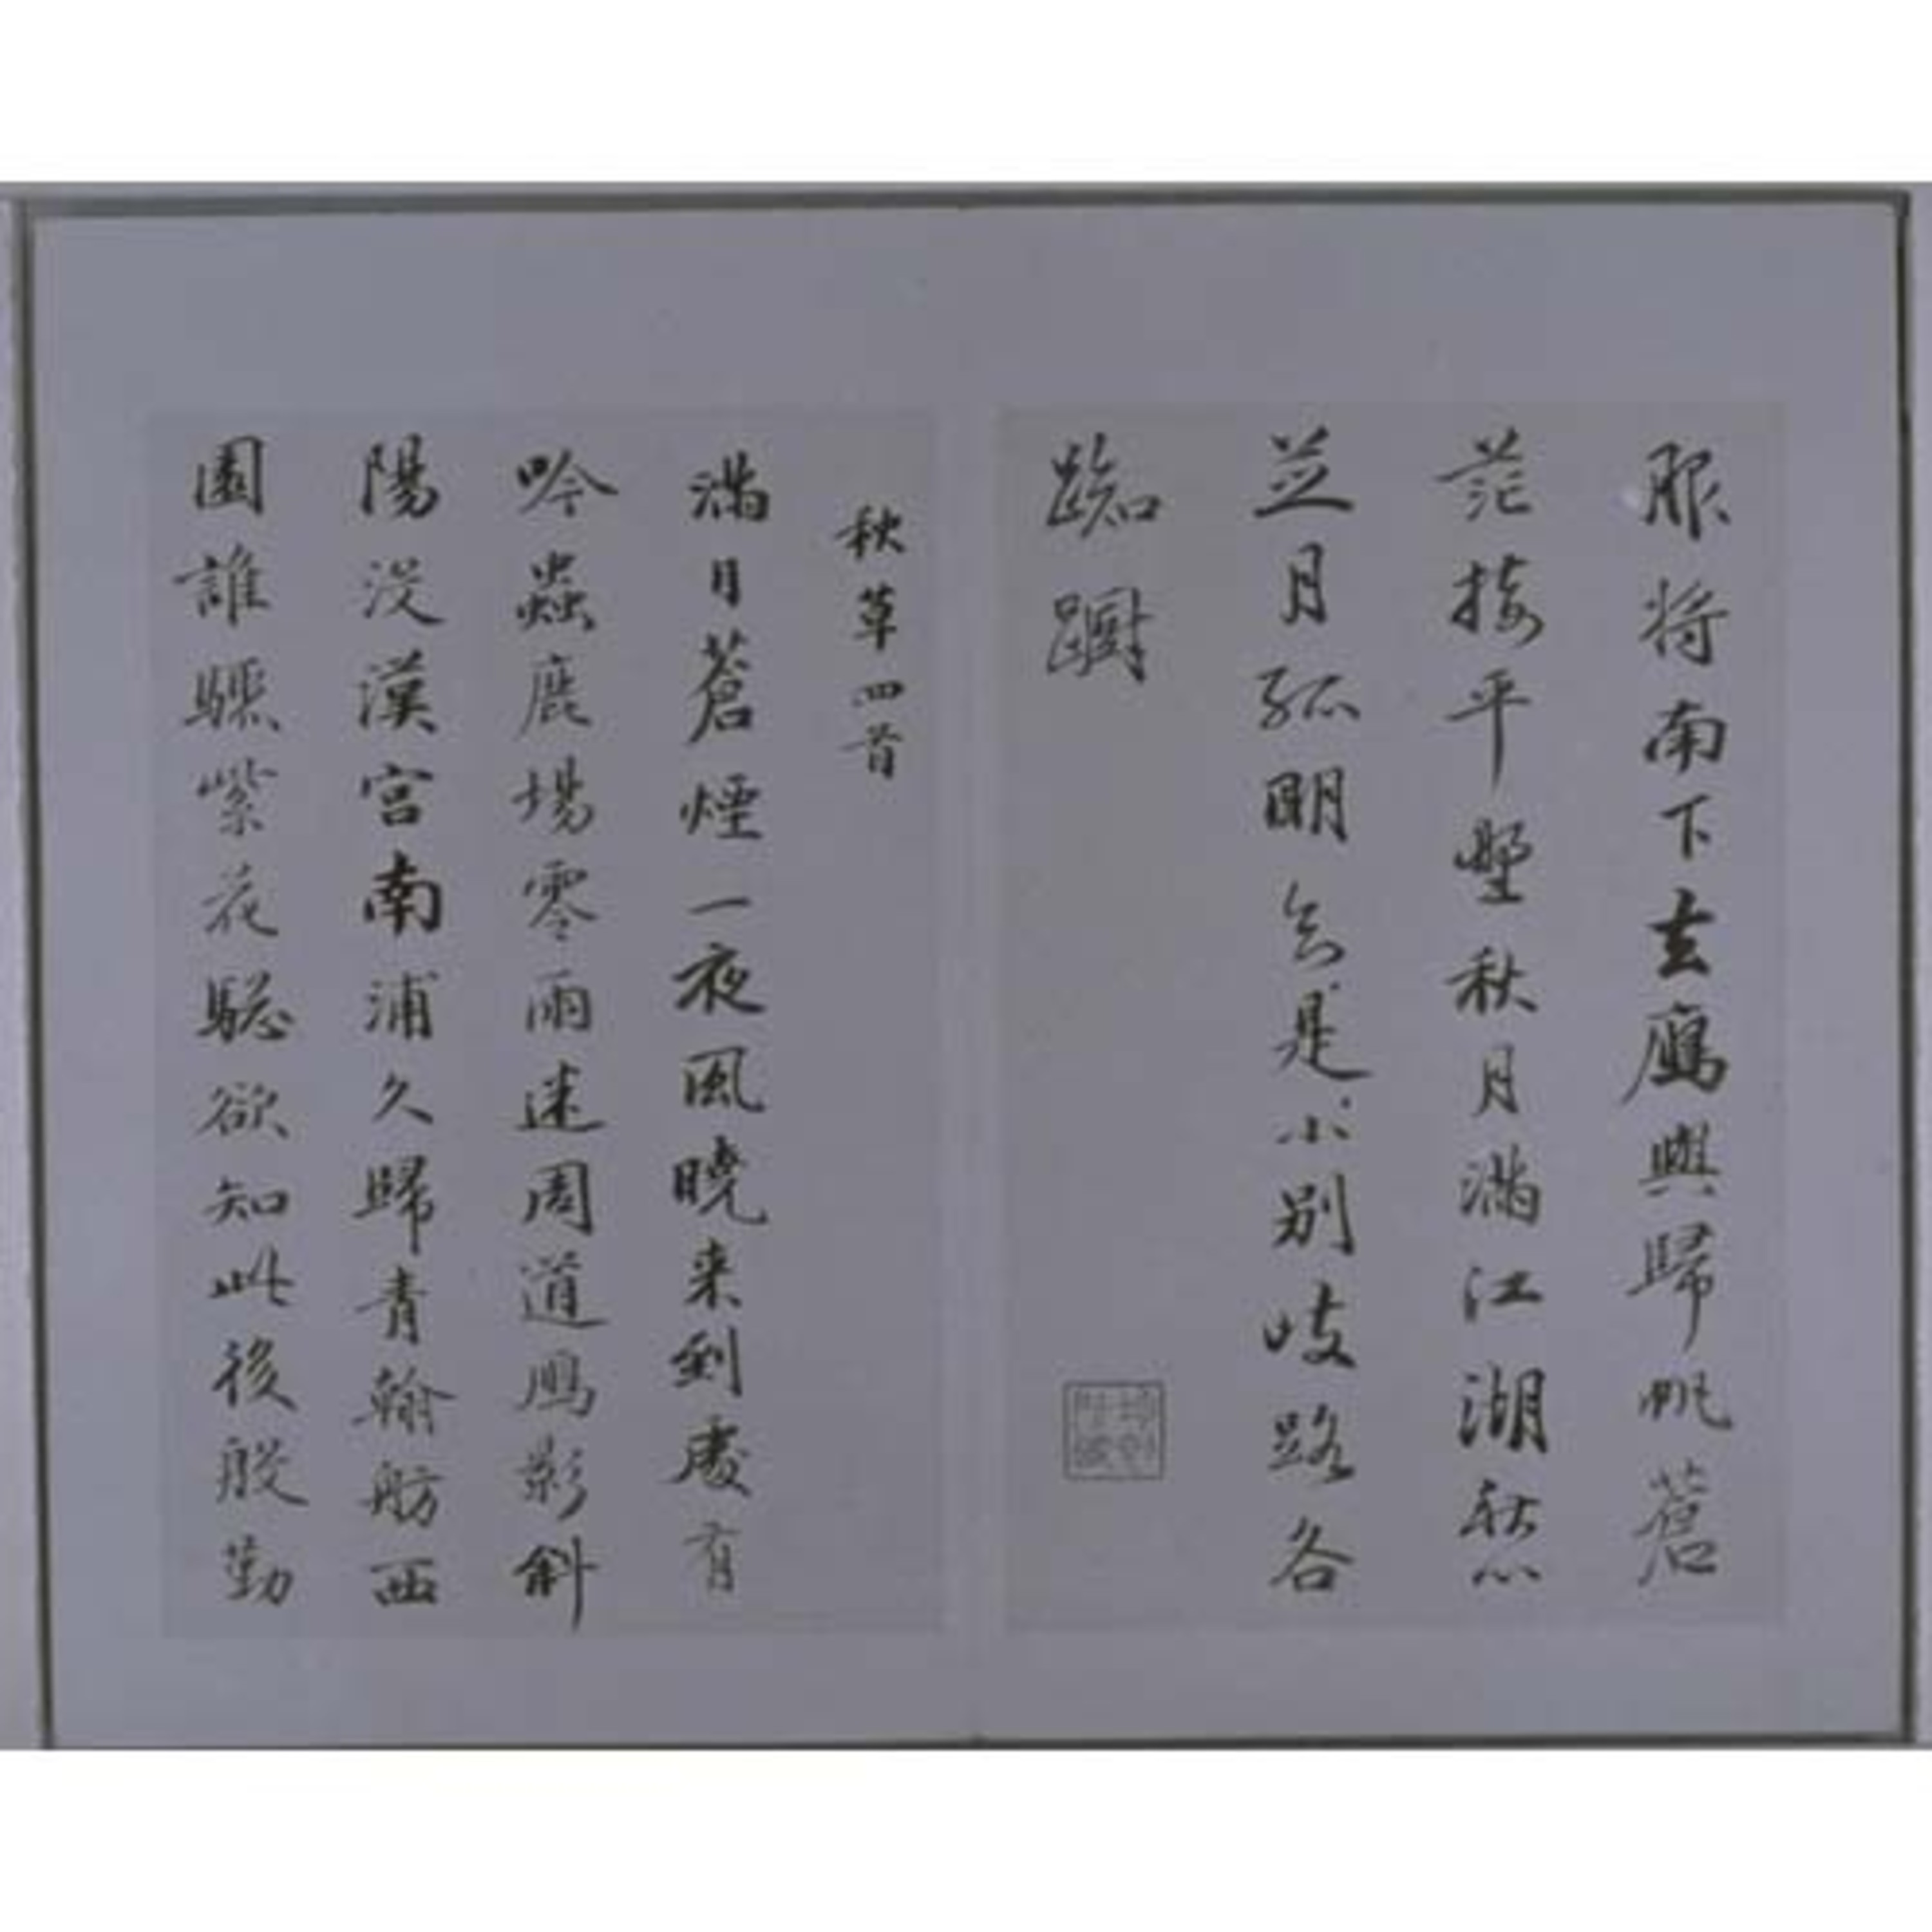 眼将南下去鴈與歸帆蒼
茫接平埜秋月滿江湖愁
並月孤明無是小别岐路各
踟躕
秋草四首
滿目蒼煙一夜風曉来到處有
吟蟲鹿場零雨迷周道鴈影斜
陽没漢宮南浦久歸青翰舫西
園誰躤紫花驄欲知此後殷勤